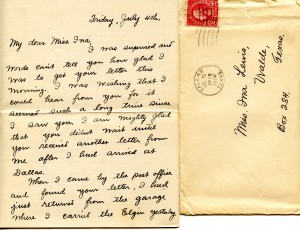 Friday, July 4th,
My dear Miss Ina,
I was suprised and
Words can't tell you how glad I
Was to get your letter this
Morning, I was wishing that I
could hear from you for it
seemed such a long time since
I saw you, I am mighty glad
that you didn't wait until
you received another letter from
Me after I had arrived at
Dallas.
When I came by the post office
and found your letter, I had
just returned from the garage
where I carried the Elgin yesterday
Miss Ina Lewis,
Uvalde,
Texas,
Box 234.